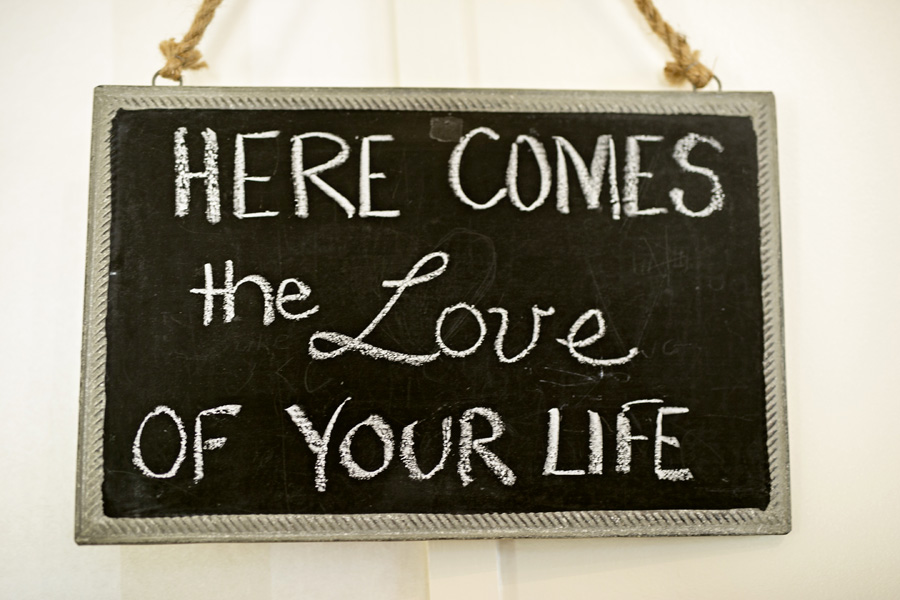 HERE COMES
the Love
OF YOUR LIFE